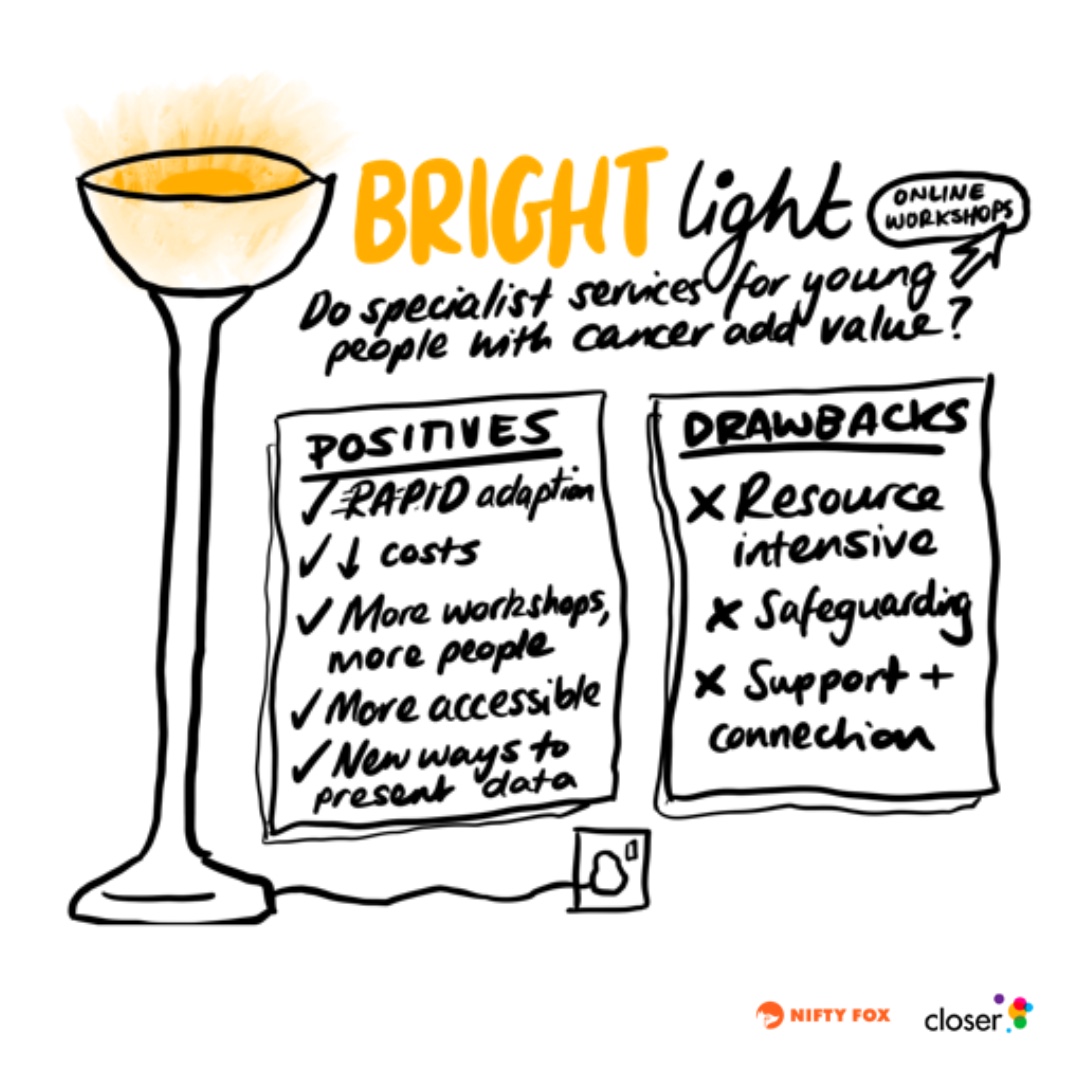 BRIGHT light
ONLINE
WORKSHOPS
Do specialist services for young
people with cancer add value?
POSITIVES
✓ RAPID adaption
✓ ↓ costs
✓ More workshops,
more people
✓ More accessible
✓ New ways to
present data
DRAWBACKS
X Resource
intensive
X Safeguarding
X Support +
connection
NIFTY FOX
closer